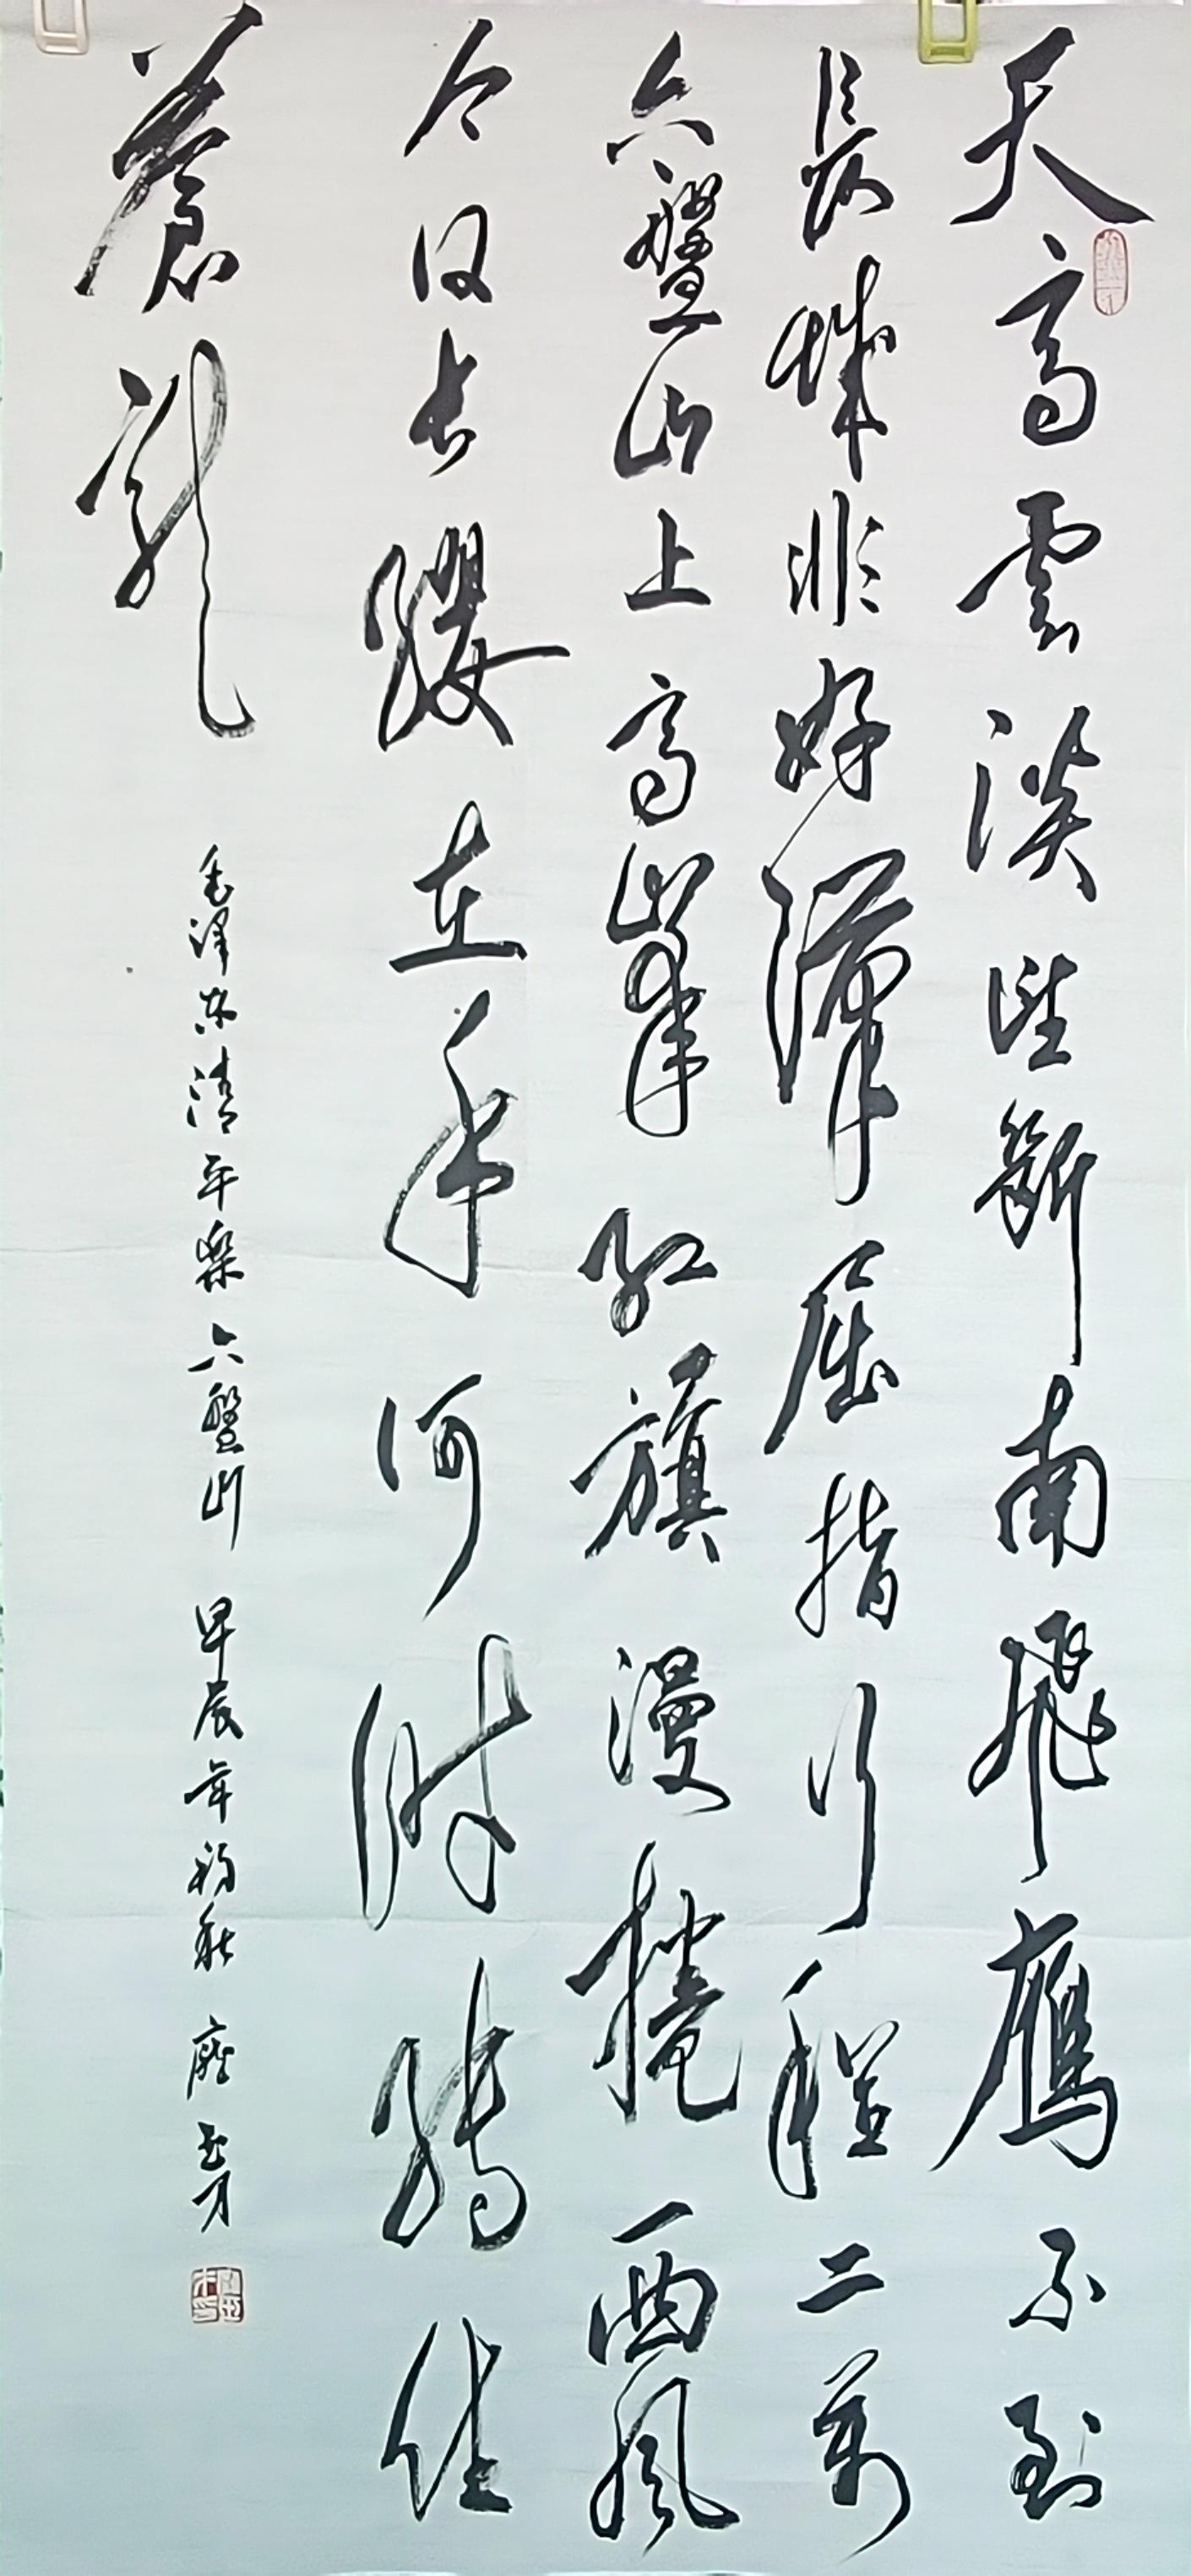 天高雲淡望斷南飛鷹不到
長城非好漢屈指行程二萬
六盤山上高峯紅旗漫捲西風
今日长纓在手何時縛住
蒼龍
毛泽东清平樂六盤山 甲辰年初秋